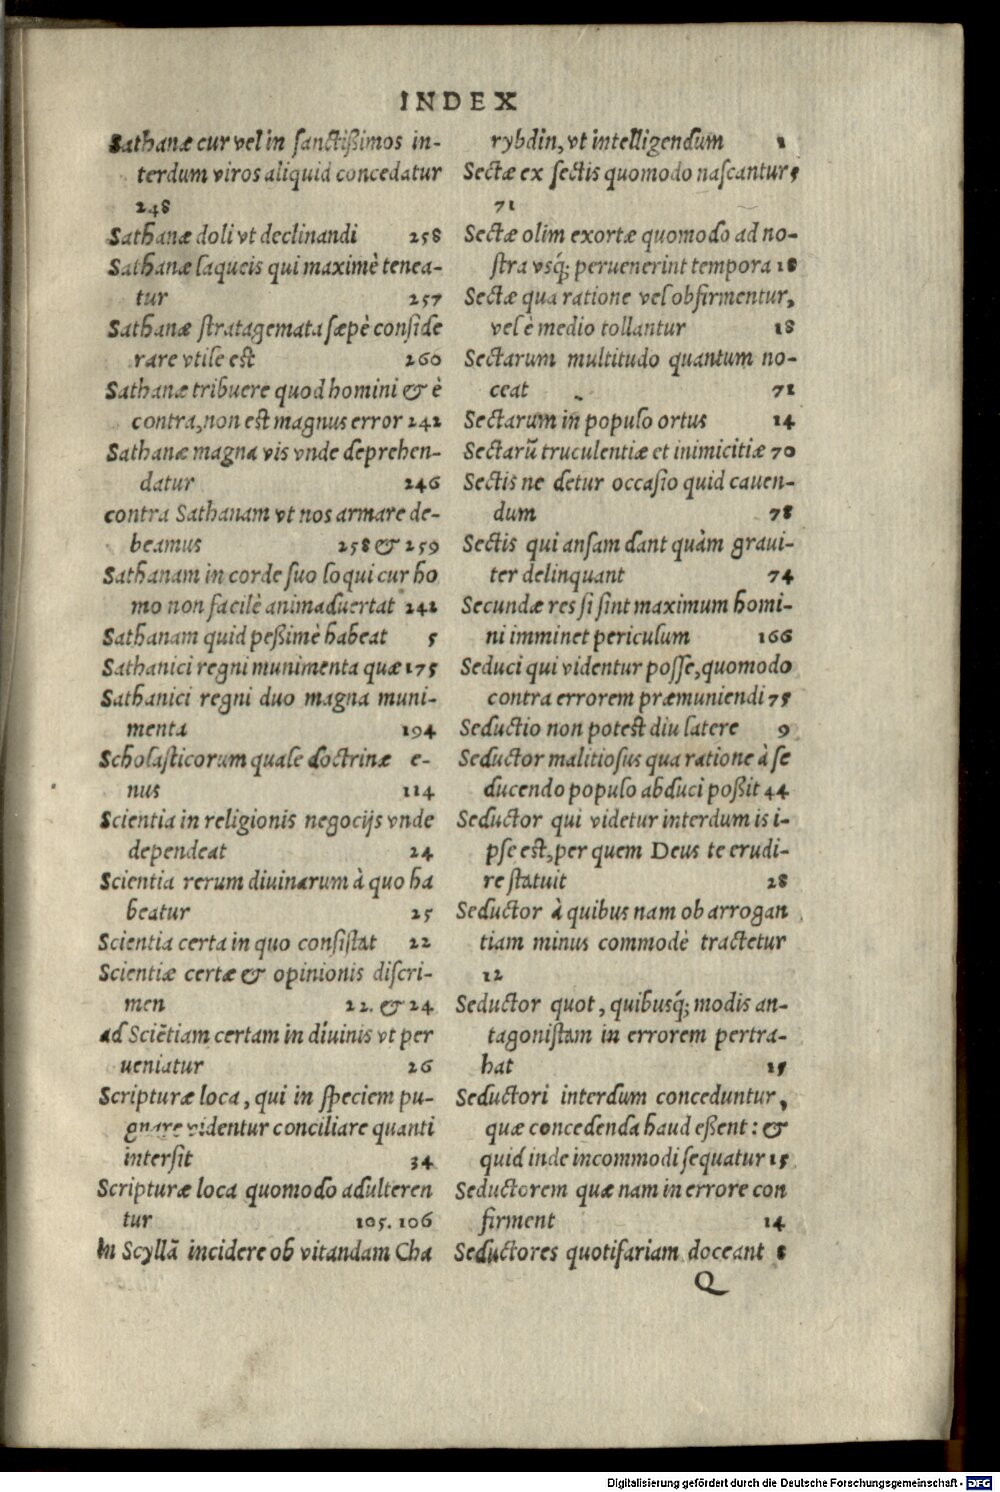 INDEX
Sathanæ cur vel in sanctißimos in-
terdum viros aliquid concedatur
248
Sathanæ doli vt declinandi 258
Sathanæ laqueis qui maximè tenea-
tur 257
Sathanæ stratagemata sæpè conside
rare vtile est 260
Sathanæ tribuere quod homini & è
contra, non est magnus error 242
Sathanæ magna vis vnde deprehen-
datur 246
contra Sathanam vt nos armare de-
beamus 258 & 259
Sathanam in corde suo loqui cur ho
mo non facilè animaduertat 242
Sathanam quid peßimè habeat 5
Sathanici regni munimenta quæ 175
Sathanici regni duo magna muni-
menta 194
Scholasticorum quale doctrinæ e-
nus 114
Scientia in religionis negocijs vnde
dependeat 24
Scientia rerum diuinarum à quo ha
beatur 25
Scientia certa in quo consistat 22
Scientiæ certæ & opinionis discri-
men 22. & 24
ad Sciẽtiam certam in diuinis vt per
ueniatur 26
Scripturæ loca, qui in speciem pu-
gnare videntur conciliare quanti
intersit 34
Scripturæ loca quomodo adulteren
tur 105. 106
In Scyllã incidere ob vitandam Cha
rybdin, vt intelligendum 1
Sectæ ex sectis quomodo nascantur,
71
Sectæ olim exortæ quomodo ad no-
stra vsq́; peruenerint tempora 18
Sectæ qua ratione vel obfirmentur,
vel è medio tollantur 18
Sectarum multitudo quantum no-
ceat 71
Sectarum in populo ortus 14
Sectarũ truculentiæ et inimicitiæ 70
Sectis ne detur occasio quid cauen-
dum 78
Sectis qui ansam dant quàm graui-
ter delinquant 74
Secundæ res si sint maximum homi-
ni imminet periculum 166
Seduci qui videntur posse, quomodo
contra errorem præmuniendi 75
Seductio non potest diu latere 9
Seductor malitiosus qua ratione à se
ducendo populo abduci poßit 44
Seductor qui videtur interdum is i-
pse est, per quem Deus te erudi-
re statuit 28
Seductor à quibus nam ob arrogan
tiam minus commodè tractetur
12
Seductor quot, quibusq́; modis an-
tagonistam in errorem pertra-
hat 15
Seductori interdum conceduntur,
quæ concedenda haud eßent : &
quid inde incommodi sequatur 15
Seductorem quæ nam in errore con
firment 14
Seductores quotifariam doceant 8
Q
Digitalisierung gefördert durch die Deutsche Forschungsgemeinschaft - DFG